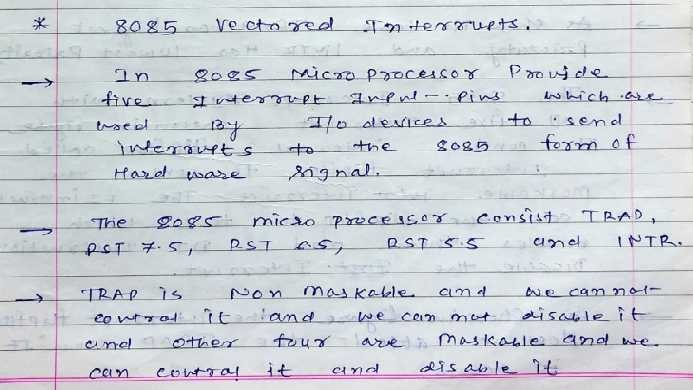 * 8085 Vectored Interrupts.
→ In 8085 Micro Processor Provide
five Interrupt Input - Pins which are
used By I/o devices to send
interrupts to the 8085 form of
Hard ware signal.
→ The 8085 micro processor consist TRAP,
RST 7.5, RST 6.5, RST 5.5 and INTR.
→ TRAP is Non maskable and we cannot
control it and we can not disable it
and other four are maskable and we
can control it and disable it